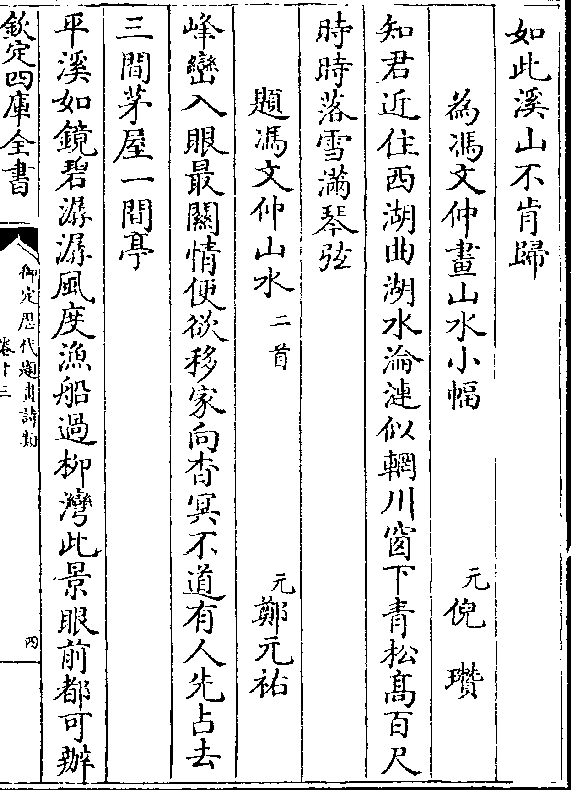 如此溪山不肯歸
為馮文仲畫山水小幅 元 倪瓚
知君近住西湖曲湖水淪漣似輞川窗下青松高百尺
時時落雪滿琴弦
題馮文仲山水二首 元 鄭元祐
峰巒入眼最關情便欲移家向杳冥不道有人先占去
三間茅屋一間亭
平溪如鏡碧潺潺風度漁船過柳灣此景眼前都可辦
欽定四庫全書
御定歴代題畫詩類
卷十三
四